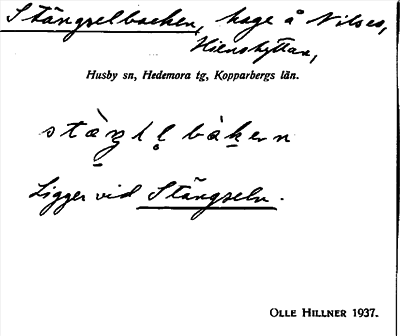 Stängselbacken, hage å Nilses,
Hienshyttan,
Husby sn, Hedemora tg, Kopparbergs län.
Ligger vid Stängseln.
OLLE HILLNER 1937.